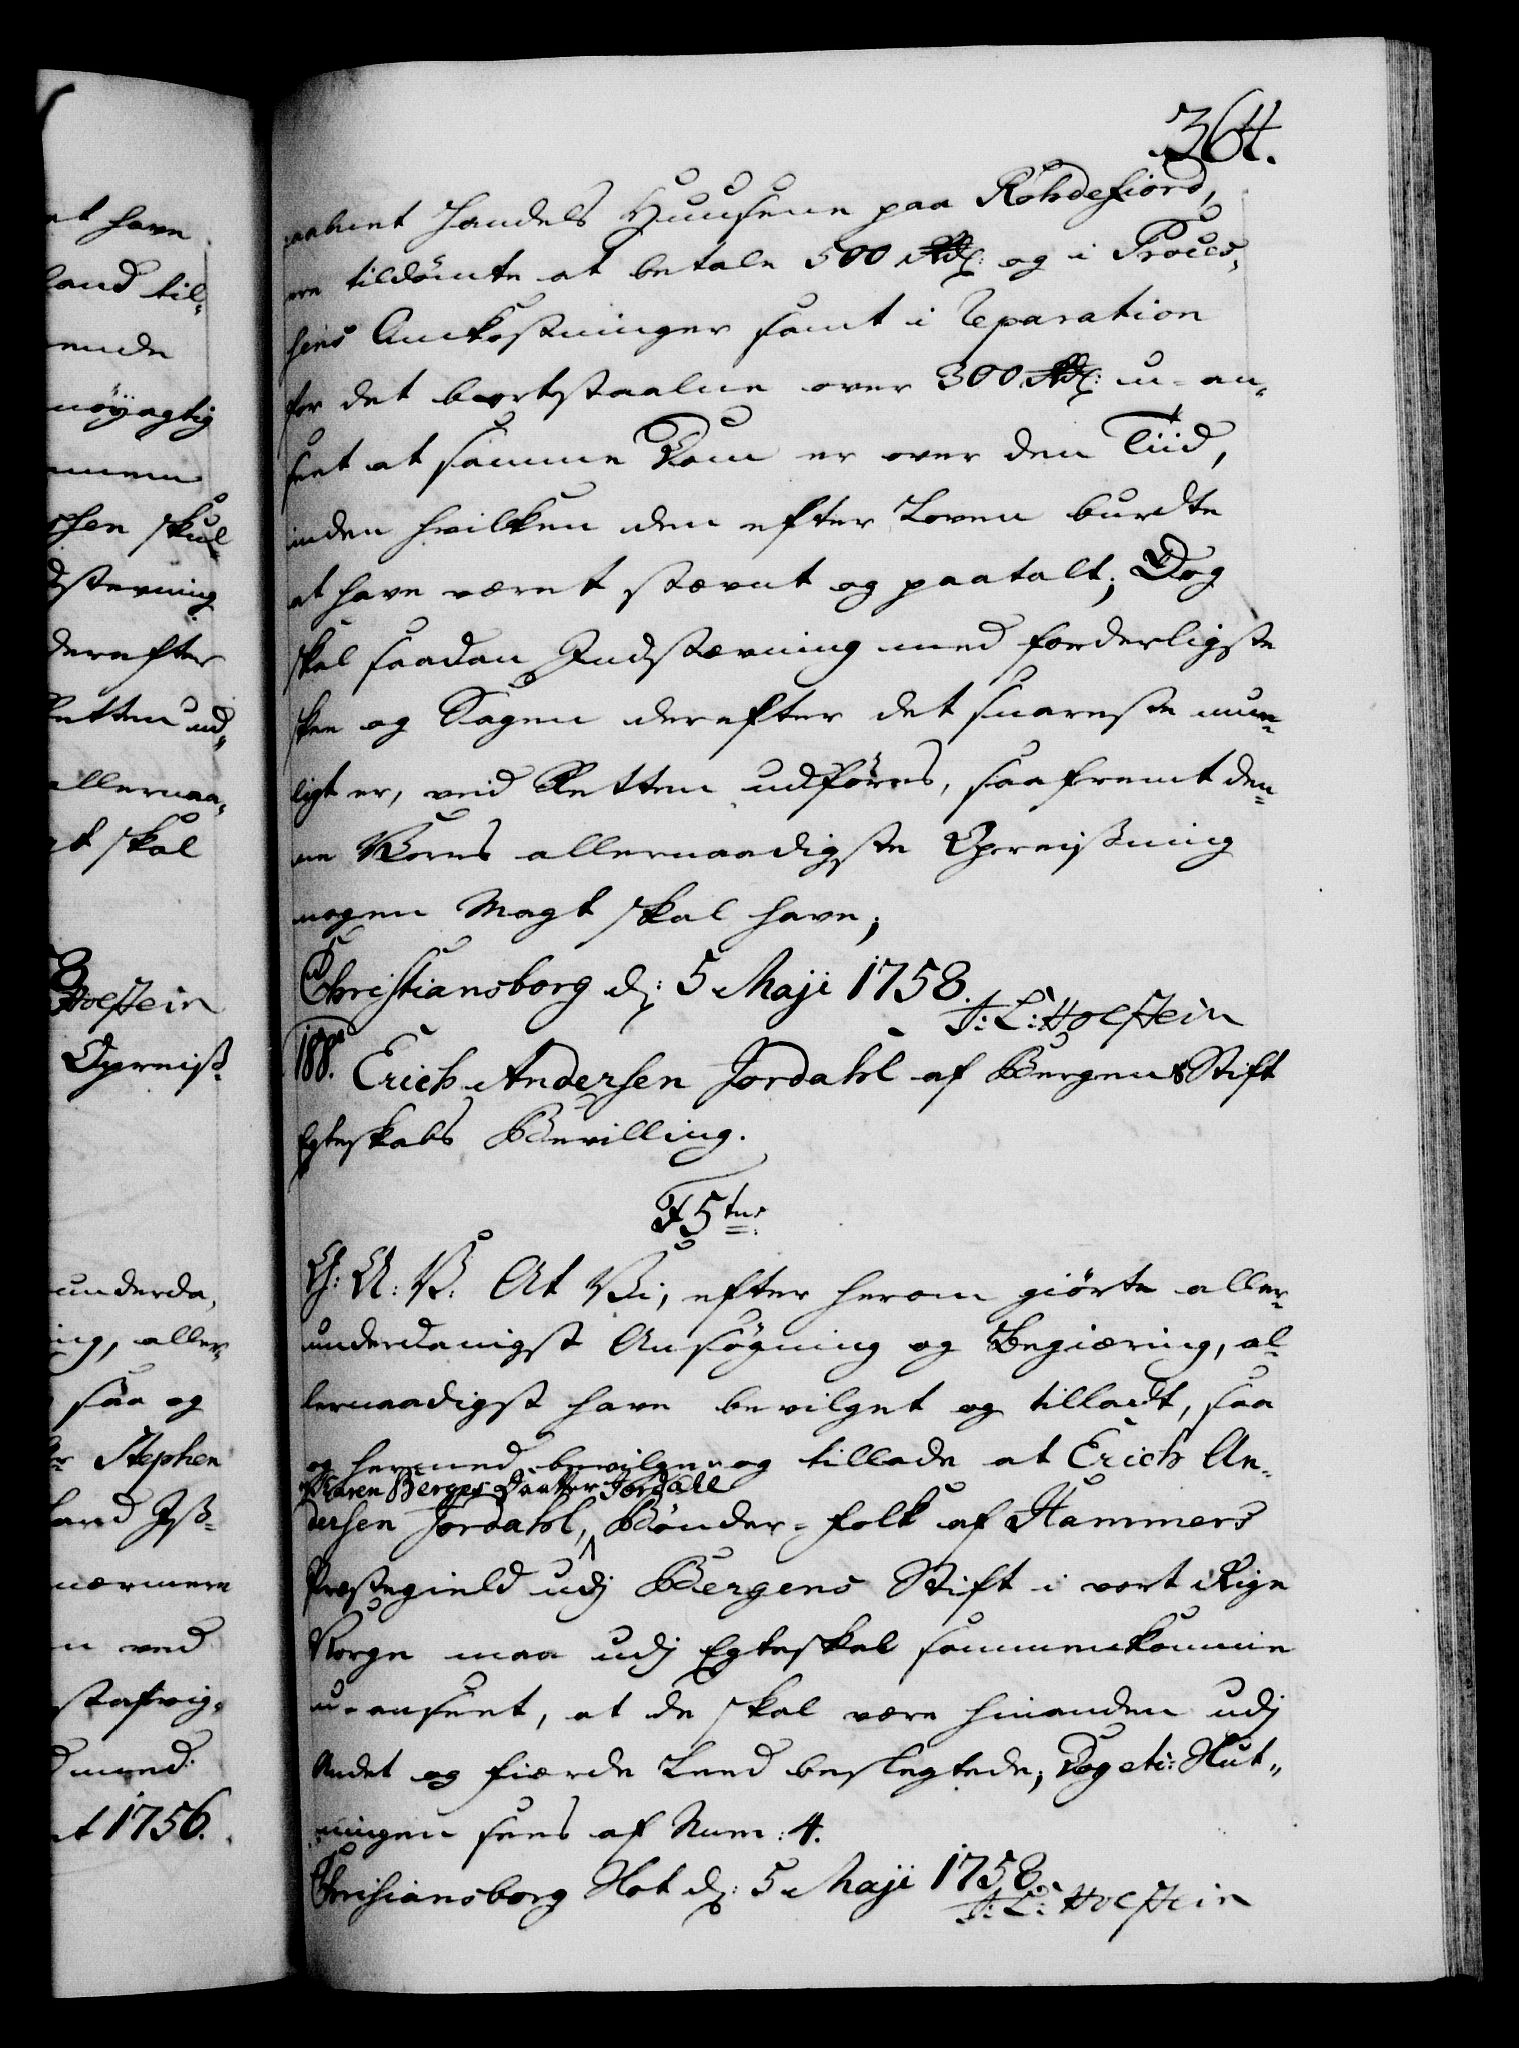 364.
Handels Huusene paa Röhdefiord,
ere tildömte at betale 500 Rdl: og i Proces-
sens Omkostninger samt i Reparation
for det bortstaalne over 300 Rdl: u-an-
seet at samme Dom er over den Tiid,
inden hvilken den efter Loven burdte
at have været stævnt og paatalt; Dog
skal saadan Indstævning med forderligste
skee og Sagen derefter det snareste mue-
ligt er, ved Retten udföres, saafremt den-
ne Vores allernaadigste Opreisning
nogen Magt skal have;
Christiansborg d: 5 Maji 1758.
J: L: Holstein
188. Erich Andersen Jordahl af Bergens Stift
Egteskabs Bevilling.
F 5tus
At Vi, efter herom giörte aller-
underdanigst Ansögning og Begiæring, al-
lernaadigst have bevilget og tilladt, saa
og hermed bevilge og tillade at Erich An-
og Karen Berges Daatter Jordall
dersen Jordahl, ^ Bönder-folk af Hammers
Præstegield udj Bergens Stift i vort Rige
Norge maa udj Egteskab sammenkomme
u-anseet, at de skal være hinanden udj
Andet og fierde Leed beslegtede; Dog etc: Slut-
ningen sees af Num: 4.
Christiansborg Slot d: 5 Maji 1758.
J: L: Holstein
at have
land til-
ende
nöyagtig
skul-
stevning
derefter
Retten ud-
allernaa-
at skal
Holstein
Opreis-
underda-
ing, aller-
saa og
Stephen
nærmere
ved
med
1756.